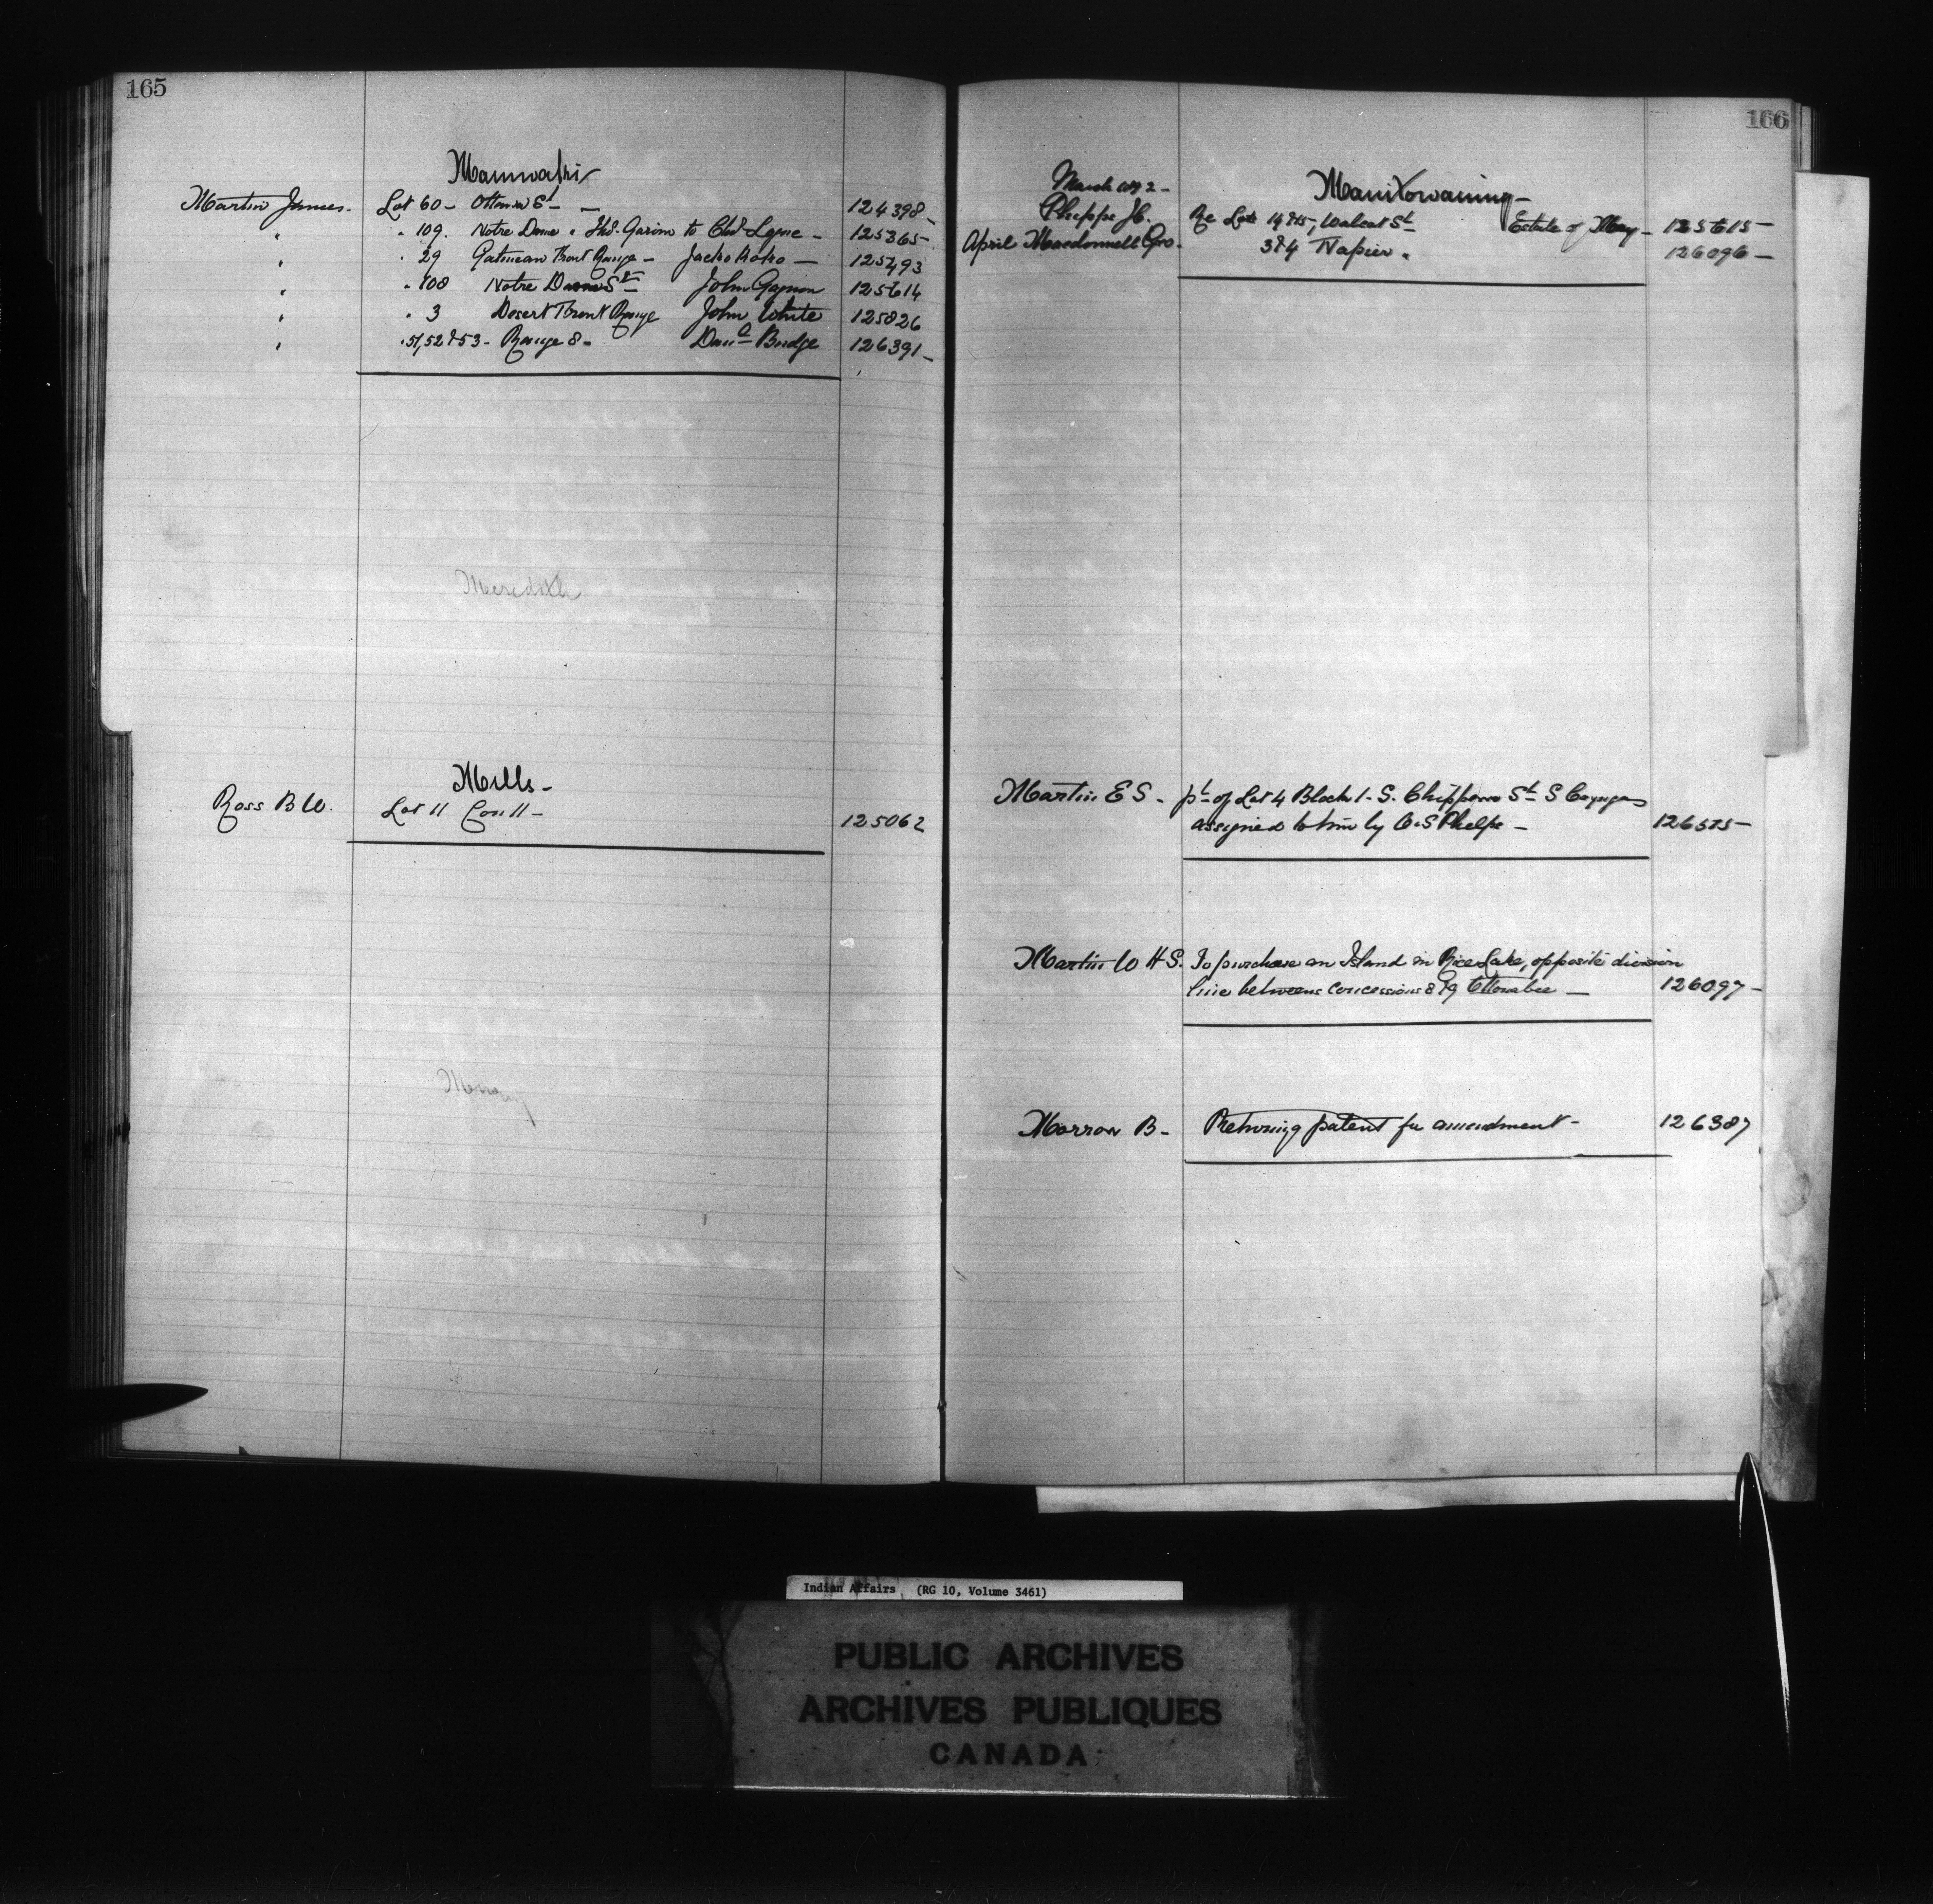 165
Maniwaki
Martin James. Lot 60 - Ottawa St - 124398
" " 109. Notre Dame " Thos. to Chs Logue - 125365
" " 29 Gatineau Front Range - Jacko Koko - 125493
" " 108 Notre Dame St John Gagnon 125614
" " 3 Desert Front Range John White 125826
" " 51, 52 & 53 - Range 8 - Budge 126391
Meredith
Mills -
Ross B W. Lot 11 Con 11 - 125062
Murray
166
Manitowaning -
March 1892 -
Phipps J C. Re Lots 14 & 15, Walcot St Estate of May - 125615 -
April Macdonnell Geo. 3 & 4 Napier " 126096 -
Martin E S - pt of Lot 4 Block 1 - S. Chippewa St S Cayuga
assigned to him by Phelps - 126575 -
Martin W H S. To purchase an Island in Rice Lake, opposite division
line between concessions 8 & 9 Otonabee - 126097 -
Morrow B - Returning patent for amendment - 126387
Indian Affairs (RG 10, Volume 3461)
PUBLIC ARCHIVES
ARCHIVES PUBLIQUES
CANADA